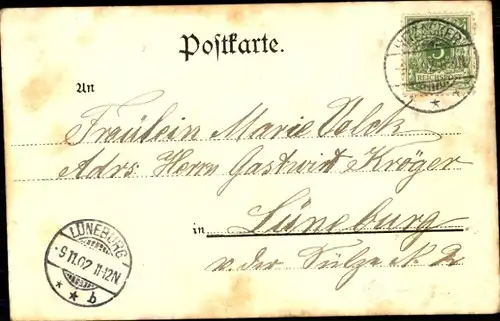 Postkarte.
5
REICHSPOST
An
Fräulein Marie Volck
Adrs. Herrn Gastwirt Kröger
in Lüneburg
v. der Sülze N. 2
LÜNEBURG
9.11.02 11-12N
* * b